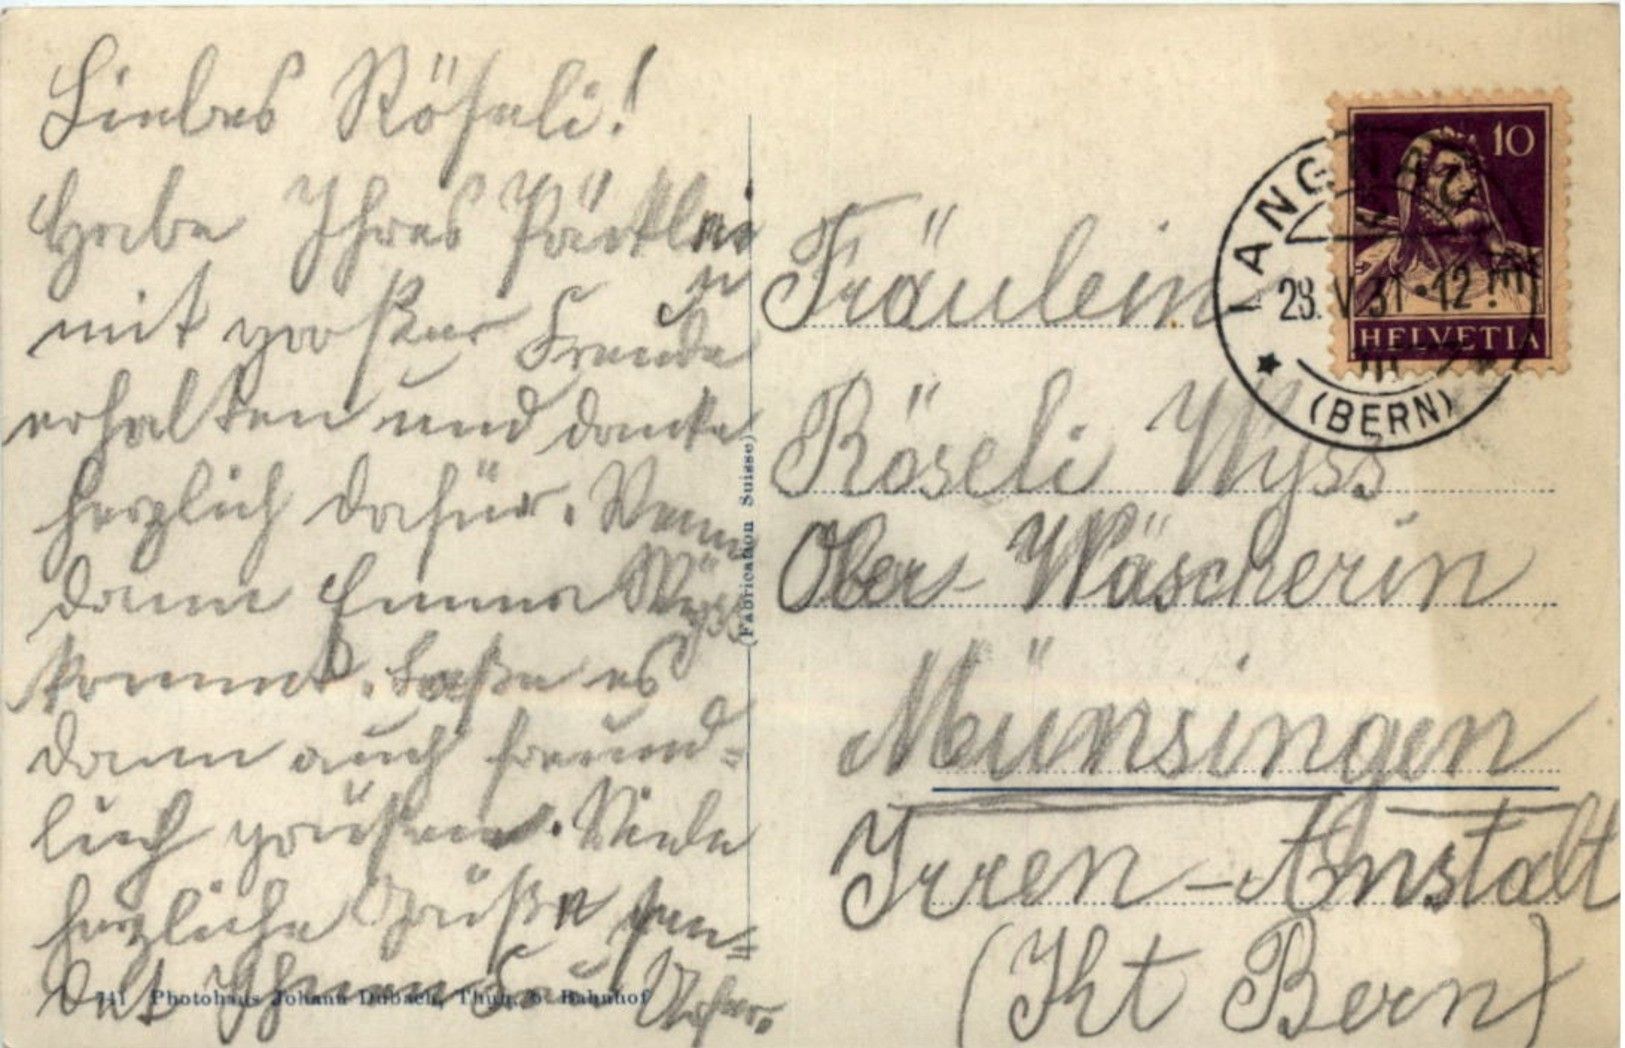 Liebes Röseli!
Habe Ihres Kärtlein
mit großer Freude
erhalten und danke
herzlich dafür. Wenn
dann Emma Wyss
kommt. Laße es
dann auch freund-
lich grüßen. Viele
herzliche Grüße sen-
det Ihnen
741 Photohaus Johana Dubach, Thun, b. Bahnhof
(Fabrication Suisse)
10
HELVETIA
28. V. 31 · 12
(BERN)
Fräulein
Röseli Wyss
Ober-Wäscherin
Münsingen
Irren-Anstalt
(Kt Bern)